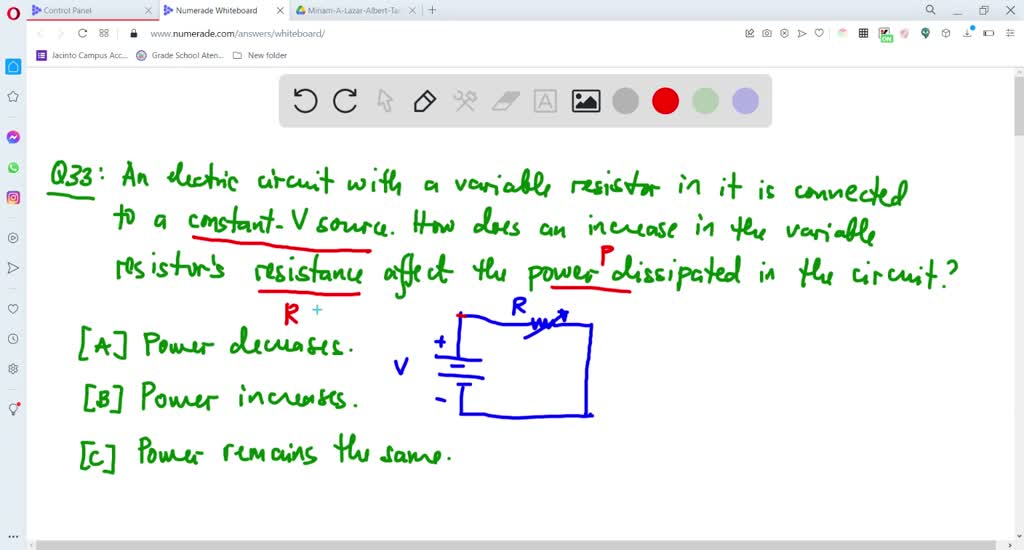 Control Panel
Numerade Whiteboard
Miriam-A-Lazar-Albert-Tar
www.numerade.com/answers/whiteboard/
ON
Jacinto Campus Acc...
Grade School Aten...
New folder
A
Q33: An electric circuit with a variable resistor in it is connected
to a constant-V source. How does an increase in the variable
resistor's resistance affect the power dissipated in the circuit?
P
R
R
[A] Power decreases.
+
V
[B] Power increases.
-
[C] Power remains the same.